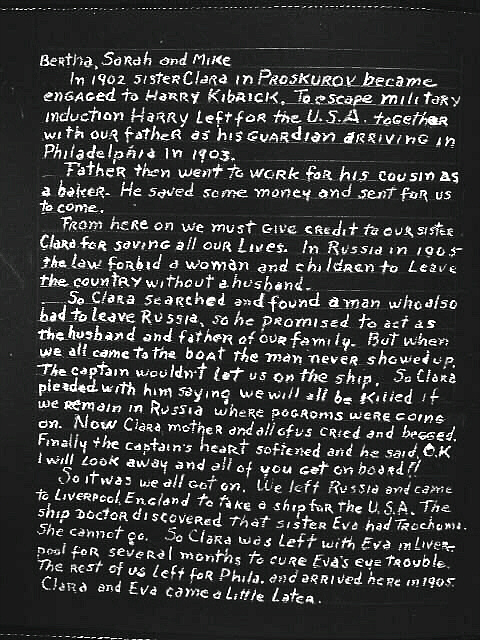 Bertha, Sarah and Mike
In 1902 sister Clara in Proskurov became
engaged to Harry Kibrick. To escape military
induction Harry left for the U.S.A. together
with our father as his guardian arriving in
Philadelphia in 1903.
Father then went to work for his cousin as
a baker. He saved some money and sent for us
to come.
From here on we must give credit to our sister
Clara for saving all our lives. In Russia in 1905
the law forbid a woman and children to leave
the country without a husband.
So Clara searched and found a man who also
had to leave Russia, so he promised to act as
the husband and father of our family. But when
we all came to the boat the man never showed up.
The captain wouldn't let us on the ship. So Clara
pleaded with him saying we will all be killed if
we remain in Russia where pogroms were going
on. Now Clara, mother and all of us cried and begged.
Finally the captain's heart softened and he said, O.K
I will look away and all of you get on board!!
So it was we all got on. We left Russia and came
to Liverpool, England to take a ship for the U.S.A. The
ship doctor discovered that sister Eva had Trachoma.
She cannot go. So Clara was left with Eva in Liver-
pool for several months to cure Eva's eye trouble.
The rest of us left for Phila. and arrived here in 1905
Clara and Eva came a little later.